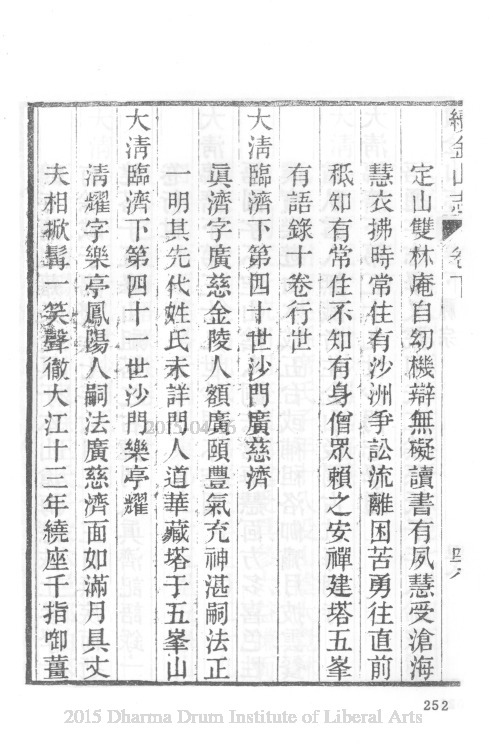 續金山志 卷下 四八
定山雙林庵自幼機辯無礙讀書有夙慧受滄海
慧衣拂時常住有沙洲爭訟流離困苦勇往直前
秪知有常住不知有身僧眾賴之安禪建塔五峯
有語錄十卷行世
大清臨濟下第四十世沙門廣慈濟
眞濟字廣慈金陵人額廣頤豐氣充神湛嗣法正
一明其先代姓氏未詳門人道華藏塔于五峯山
大清臨濟下第四十一世沙門樂亭耀
清耀字樂亭鳳陽人嗣法廣慈濟面如滿月具丈
夫相掀髯一笑聲徹大江十三年繞座千指啣薑
2015-04-16
252
2015 Dharma Drum Institute of Liberal Arts